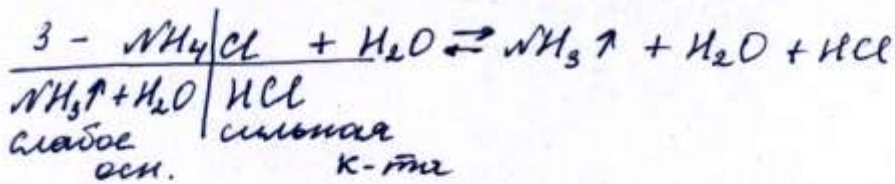 3 - NH₄|Cl + H₂O ⇄ NH₃↑ + H₂O + HCl
NH₃↑+H₂O | HCl
слабое сильная
осн. к-та